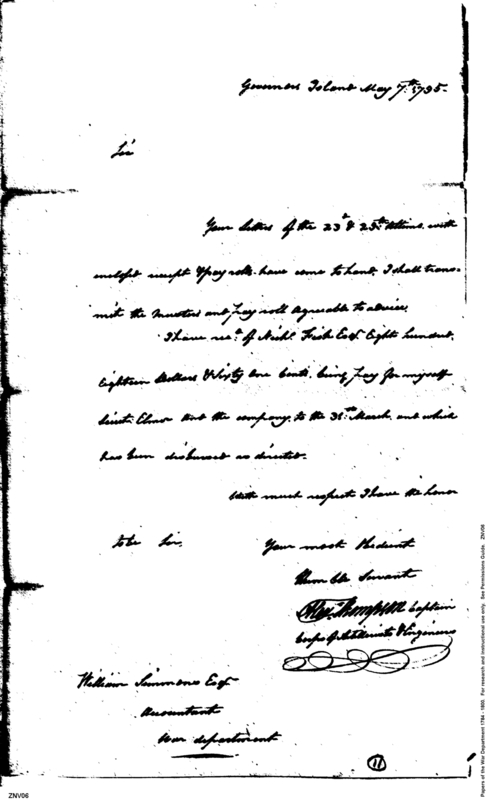 Governors Island May 7th 1795.
Sir
Your letters of the 23d & 25th Ultimo. with
enclosed receipt & pay rolls. have come to hand I shall trans-
mit the Musters and pay roll agreable to advice.
I have recd. of Nichs. Fish Esqr Eight hundred,
Eighteen Dollars & sixty one Cents. being pay for myself
Lieut. Elmer and the company, to the 31st March, and which
has been disbursed as directed.
With much respect I have the honor
to be Sir, Your most Obedient
Humble Servant
Alexr. Thompson Captain
Corps of Artillerists & Engineers
William Simmons Esqr
Accountant
War department
11
ZNV06
Papers of the War Department 1784 - 1800. For research and instructional use only. See Permissions Guide. ZNV06